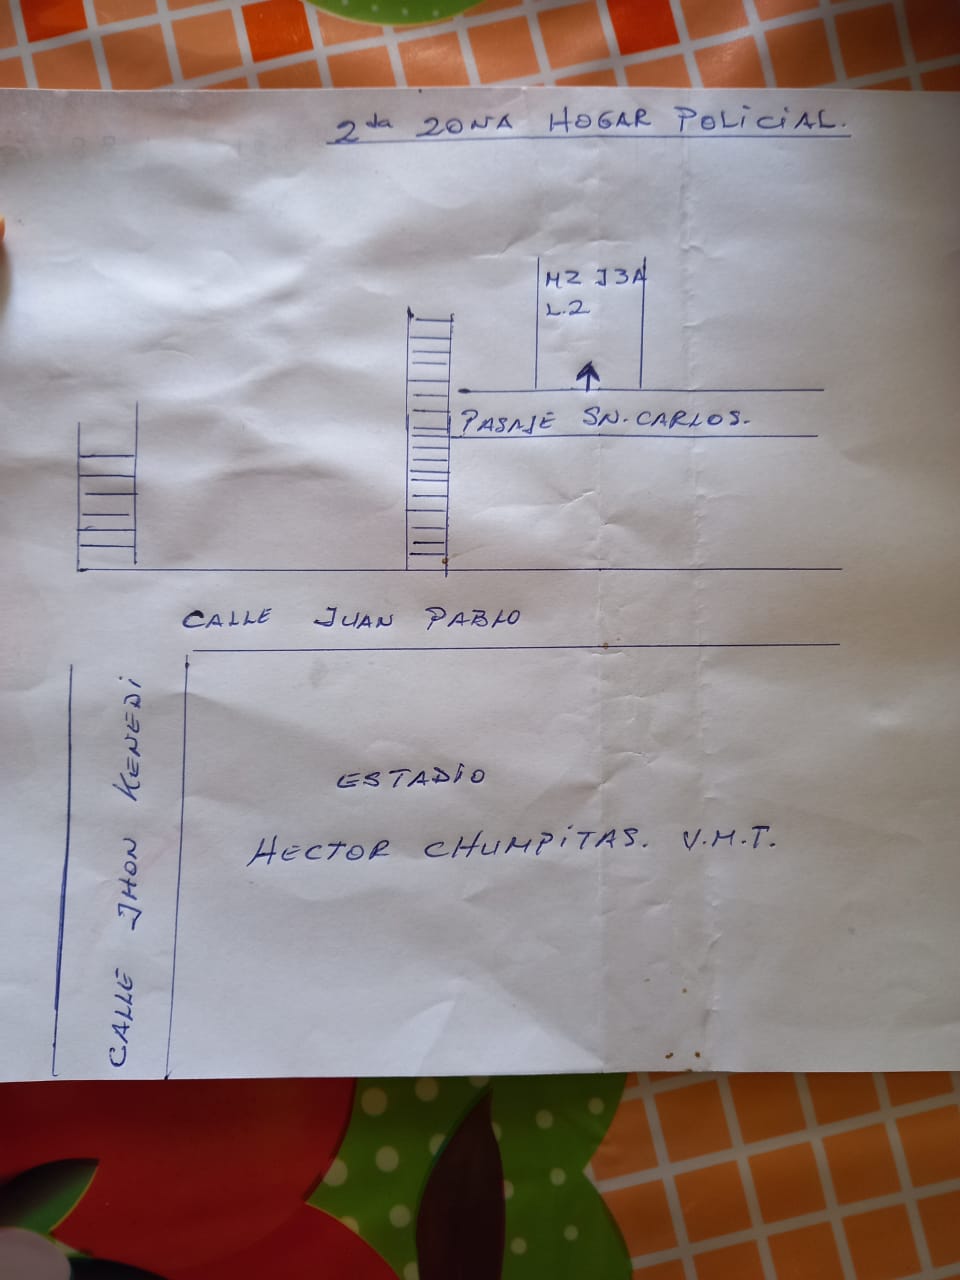 2da ZONA HOGAR POLICIAL.
MZ J3A
L.2
PASAJE SN. CARLOS.
CALLE JUAN PABLO
CALLE JHON KENEDI
ESTADIO
HECTOR CHUMPITAS. V.M.T.